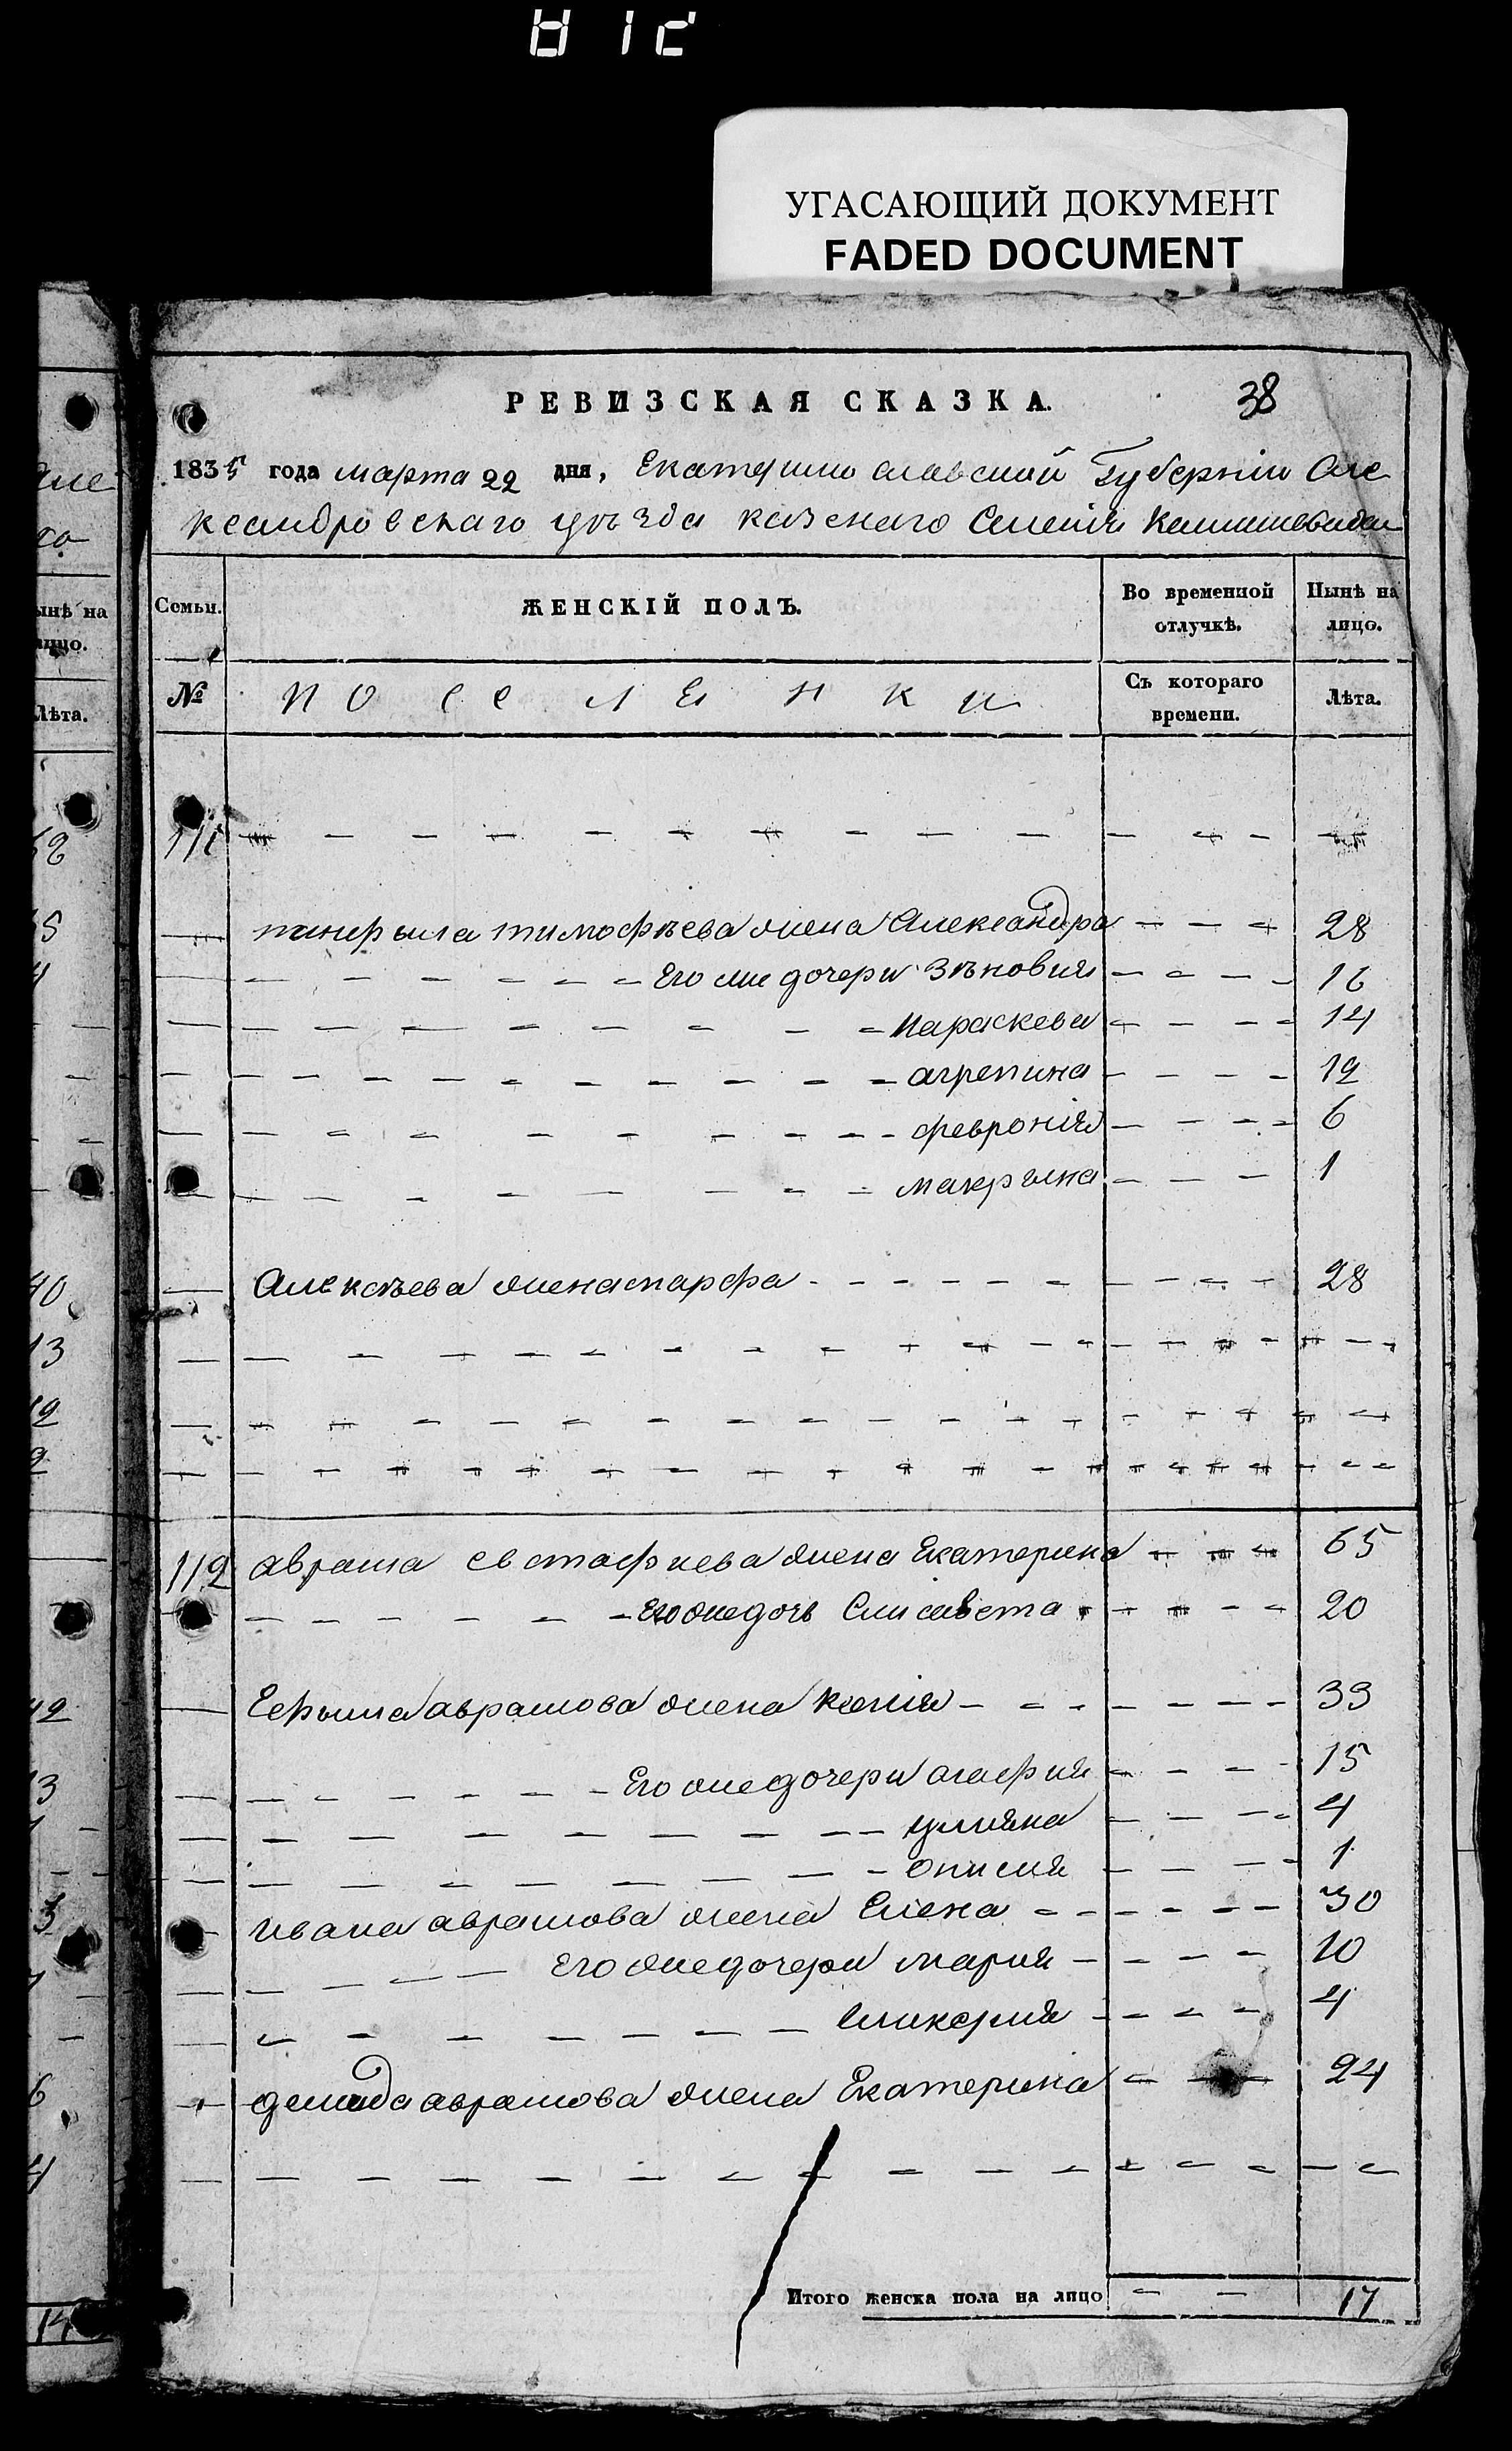 УГАСАЮЩИЙ ДОКУМЕНТ
FADED DOCUMENT
РЕВИЗСКАЯ СКАЗКА. 38
1835 года марта 22 дня, Екатеринославской Губернiи Але
ксандровскаго уѣзда казенаго Селенiя
Семьи. ЖЕНСКIЙ ПОЛЪ. Во временной отлучкѣ. Нынѣ на лицо.
№ поселенки Съ котораго времени. Лѣта.
111
панфыла тимофѣева жена Александра 28
Его же дочери Зѣновия 16
Параскева 14
агрепина 12
февронiя 6
макрына 1
Алексѣева жена марфа 28
112 аврама евстафиева жена Екатерина 65
Его же дочь Елисавета 20
Ефыма аврамова жена Ксенiя 33
Его же дочери агафия 15
улияна 4
1
ивана аврамова жена Елена 30
Его же дочери мария 10
Гликерия 4
демида аврамова жена Екатерина 24
Итого женска пола на лицо 17
ынѣ на
лицо.
Лѣта.
40
13
12
2
42
13
14